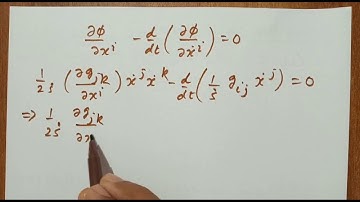 ∂ϕ/∂xⁱ - d/dt (∂ϕ/∂ẋⁱ) = 0
1/2ṡ (∂g_jk/∂xⁱ) ẋʲ ẋᵏ - d/dt (1/ṡ g_ij ẋʲ) = 0
⇒ 1/2ṡ ∂g_jk/∂x